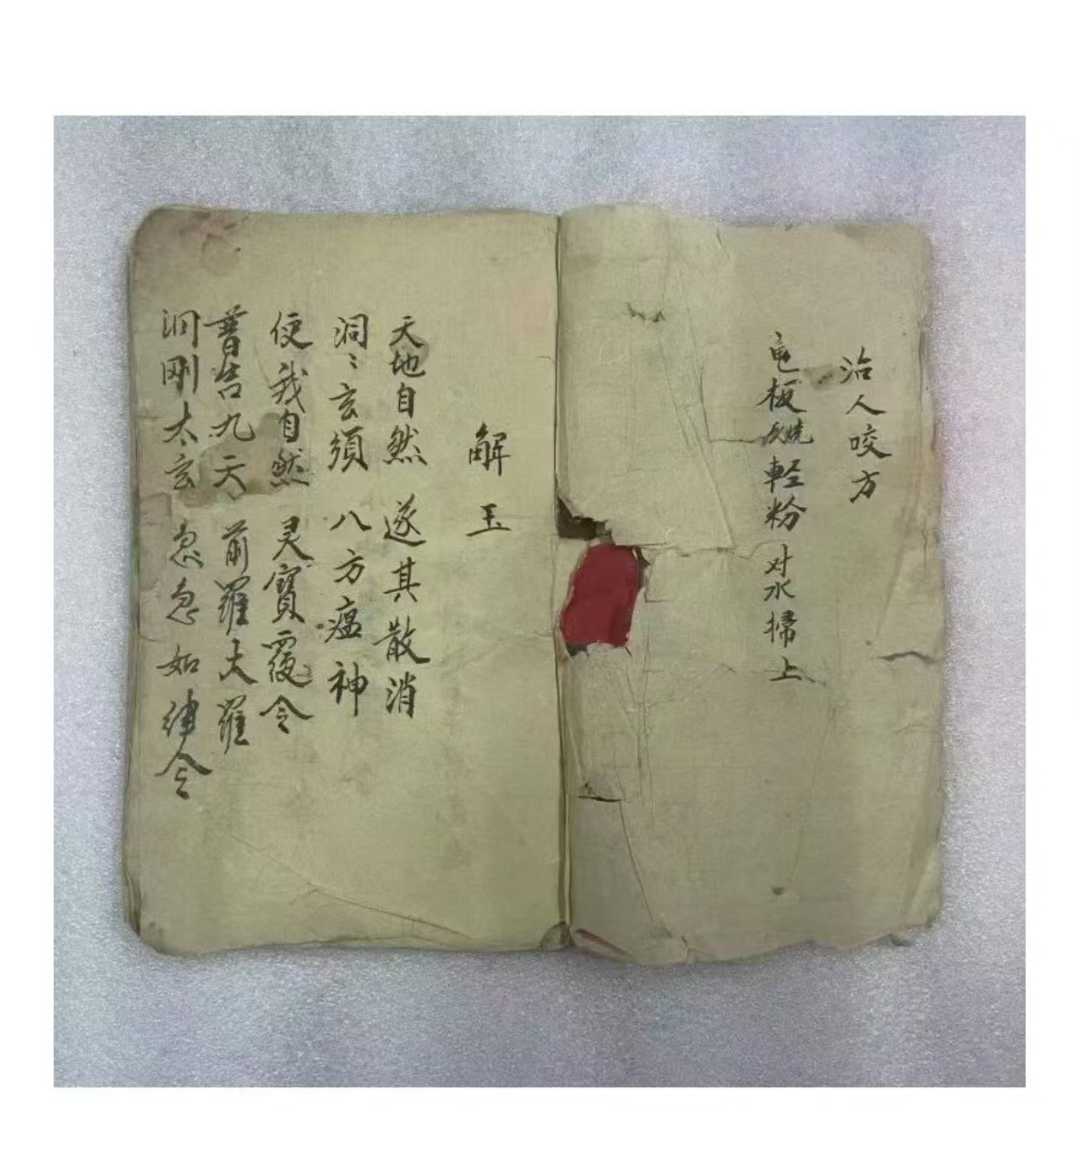 治人咬方
龟板 烧 輕粉 对水掃上
解玉
天地自然 遂其散消
洞〻玄須 八方瘟神
使我自然 灵寶覆令
普告九天 前羅大羅
洞刚太玄 急急如律令